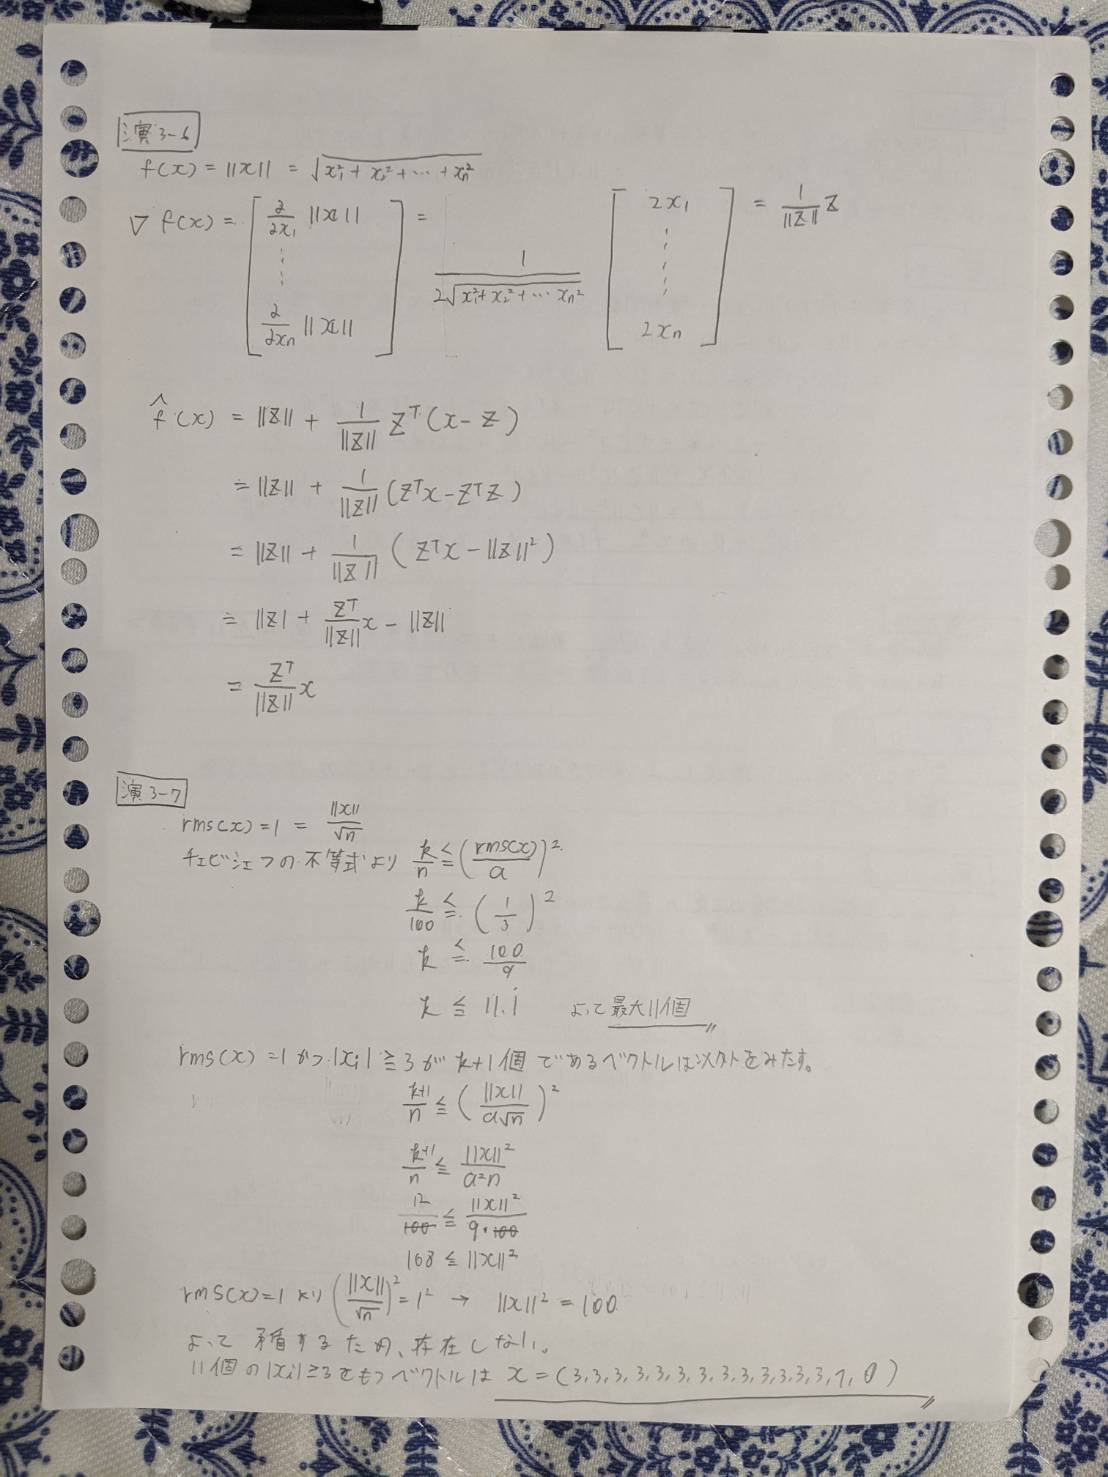 演3-6
f(x) = ||x|| = √(x₁² + x₂² + ⋯ + xn²)
∇f(x) = [∂/∂x₁ ||x|| ⋮ ∂/∂xn ||x||] = 1/(2√(x₁² + x₂² + ⋯ xn²)) [2x₁ ⋮ 2xn] = 1/||z|| z
f̂(x) = ||z|| + 1/||z|| zᵀ(x − z)
= ||z|| + 1/||z|| (zᵀx − zᵀz)
= ||z|| + 1/||z|| (zᵀx − ||z||²)
= ||z| + zᵀ/||z|| x − ||z||
= zᵀ/||z|| x
演3-7
rms(x) = 1 = ||x||/√n
チェビシェフの不等式より k/n ≦ (rms(x)/a)²
k/100 ≦ (1/3)²
k ≦ 100/9
k ≦ 11.1̇ よって最大11個
rms(x) = 1 かつ |xi| ≧ 3 が k+1個であるベクトルは以外をみたす。
k+1/n ≦ (||x||/a√n)²
k+1/n ≦ ||x||²/a²n
12/100 ≦ ||x||²/9・100
108 ≦ ||x||²
rms(x)=1 より (||x||/√n)² = 1² → ||x||² = 100
よって矛盾するため、存在しない。
11個の|xi|≧3をもつベクトルは x = (3,3,3,3,3,3,3,3,3,3,3,3,1,0)